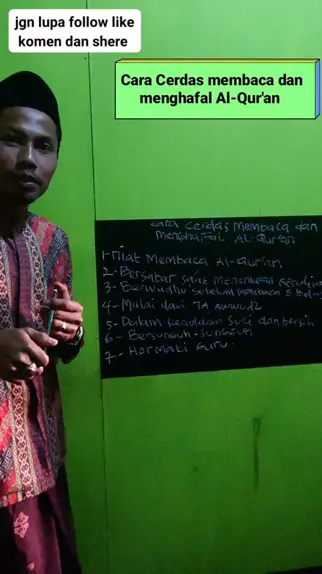 jgn lupa follow like
komen dan shere
Cara Cerdas membaca dan
menghafal Al-Qur'an
cara cerdas Membaca dan
menghafal Al-Qur'an
1-Niat Membaca Al-Qur'an
2-Bersabar saat Menemukan
3-Berwudhu sebelum membaca
4-Mulai dari TA awwudz
5-Dalam keadaan suci dan bersih
6-Bersungguh-sungguh
7-Hormati Guru.